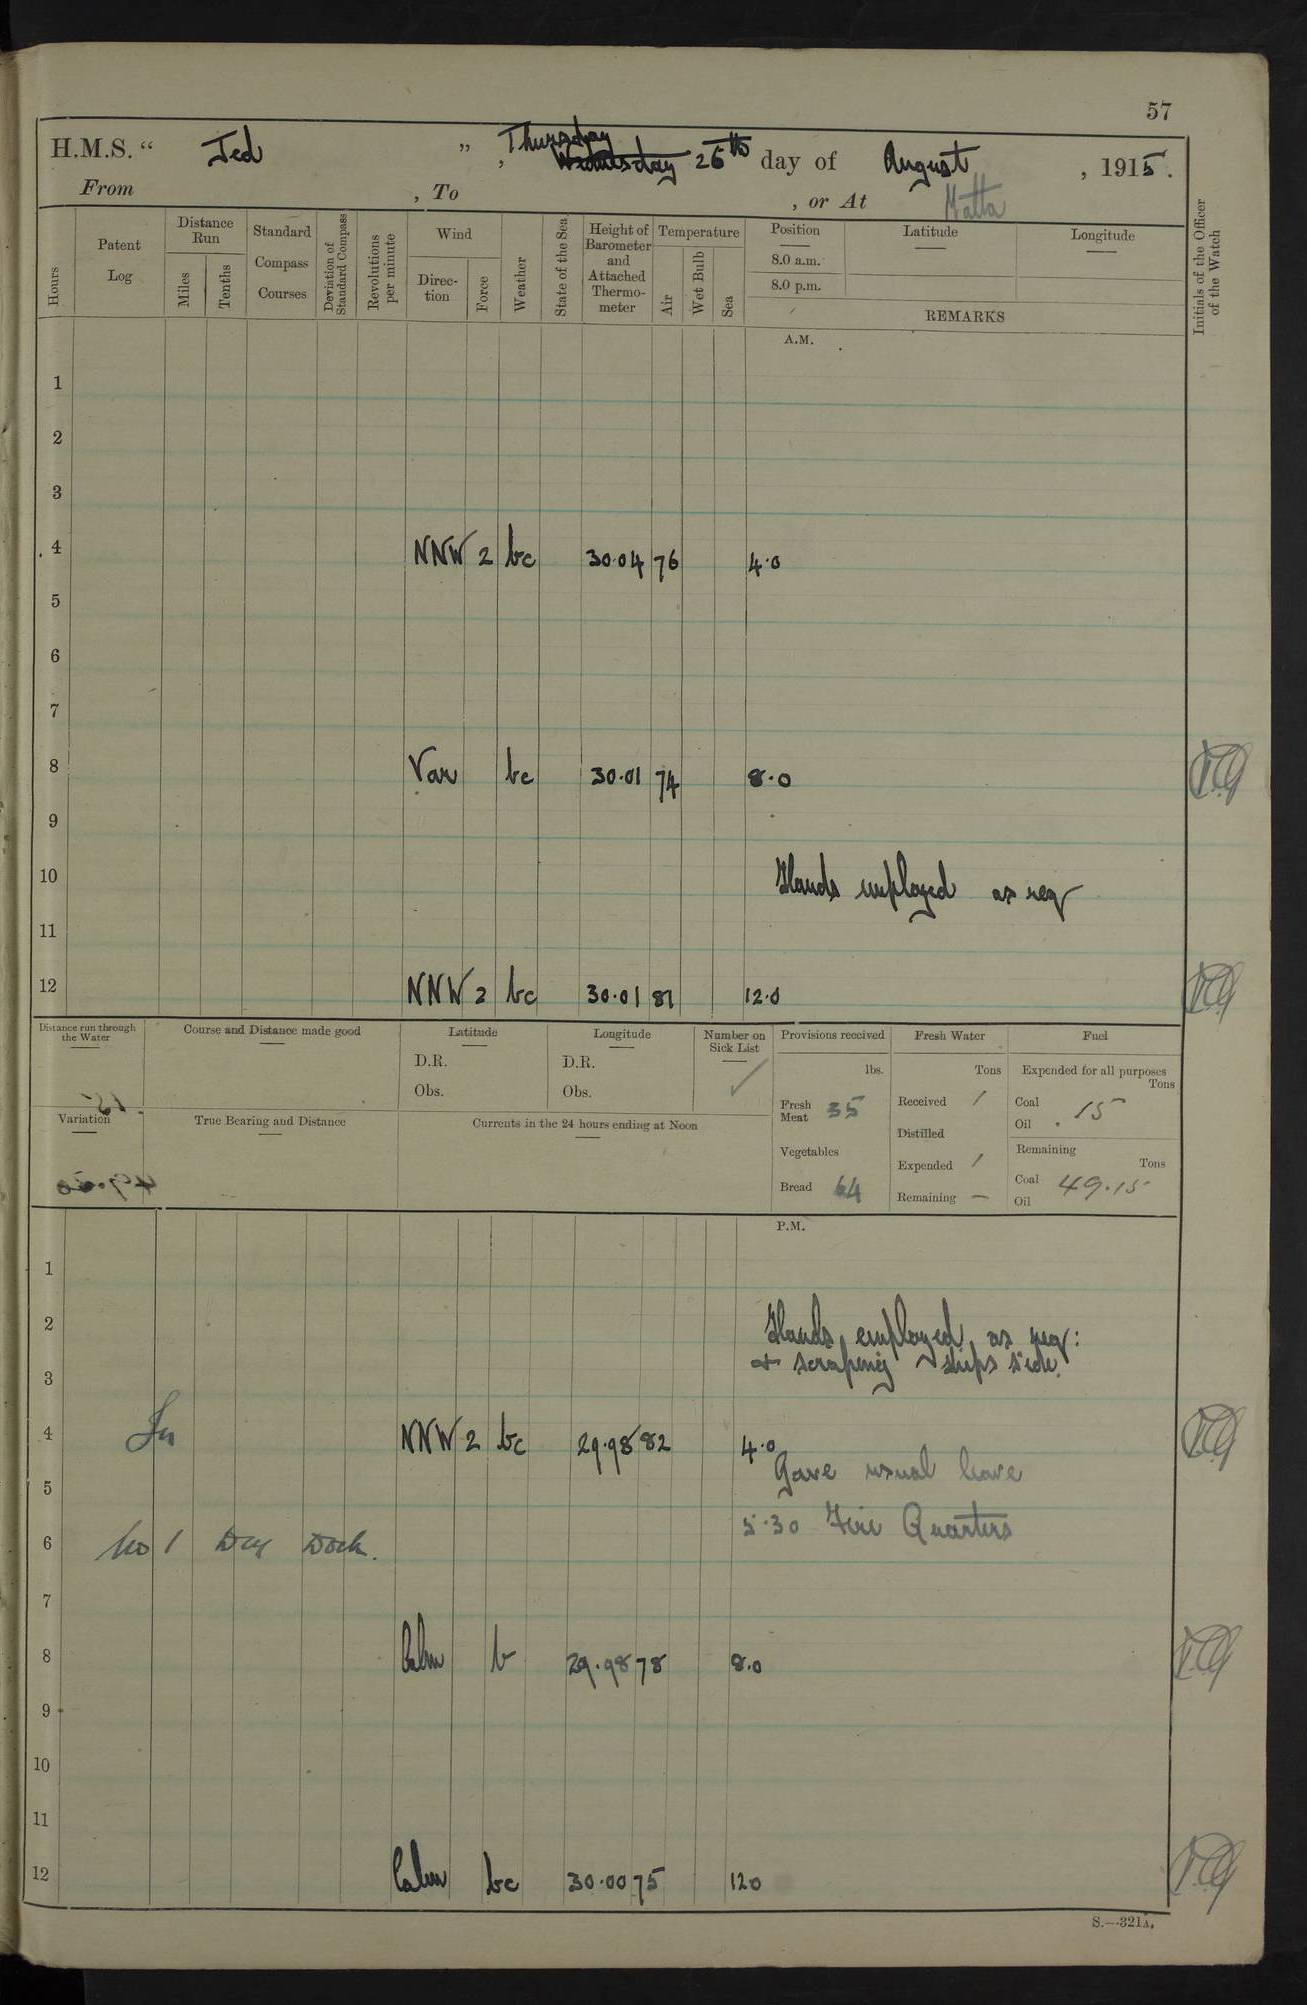 57
H.M.S. “ Jed ”, Thursday Wednesday 26th day of August, 1915.
From , To , or At Malta
Hours
Patent Log
Distance Run
Miles
Tenths
Standard Compass Courses
Deviation of Standard Compass
Revolutions per minute
Wind
Direction
Force
Weather
State of the Sea
Height of Barometer and Attached Thermometer
Temperature
Air
Wet Bulb
Sea
Position
8.0 a.m.
8.0 p.m.
Latitude
Longitude
REMARKS
Initials of the Officer of the Watch
A.M.
1
2
3
4 NNW 2 bc 30.04 76 4.0
5
6
7
8 Var bc 30.01 74 8.0
9
10 Hands employed as req
11
12 NNW 2 bc 30.01 81 12.0
Distance run through the Water
Course and Distance made good
Latitude
D.R.
Obs.
Longitude
D.R.
Obs.
Number on Sick List
Provisions received
lbs.
Fresh Meat 35
Vegetables
Bread 64
Fresh Water
Tons
Received 1
Distilled
Expended 1
Remaining —
Fuel
Expended for all purposes
Tons
Coal 15
Oil
Remaining
Tons
Coal 49.15
Oil
Variation
True Bearing and Distance
Currents in the 24 hours ending at Noon
P.M.
1
2 Hands employed as req:
3 & scraping ships side.
4 In NNW 2 bc 29.98 82 4.0
Gave usual leave
5
5.30 Fire Quarters
6 No 1 Dry Dock.
7
8 Calm b 29.98 78 8.0
9
10
11
12 Calm bc 30.00 75 12.0
S.—321A.